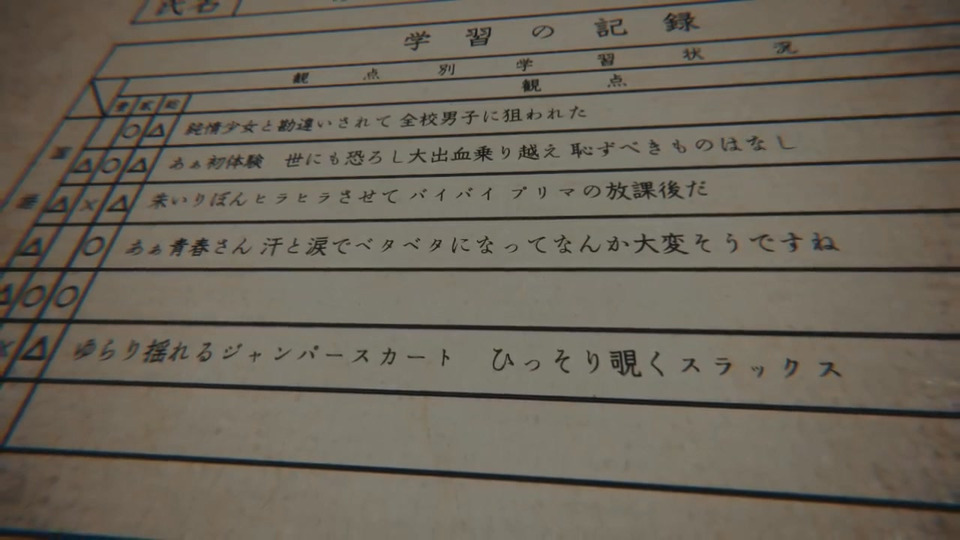 氏名
学習の記録
観点別学習状況
観点
○△ 純情少女と勘違いされて 全校男子に狙われた
△○△ あぁ初体験 世にも恐ろし大出血乗り越え 恥ずべきものはなし
△×△ 朱いりぼんヒラヒラさせて バイバイ プリマの放課後だ
△ ○ あぁ青春さん 汗と涙でベタベタになってなんか大変そうですね
△○○
×△ ゆらり揺れるジャンパースカート ひっそり覗くスラックス